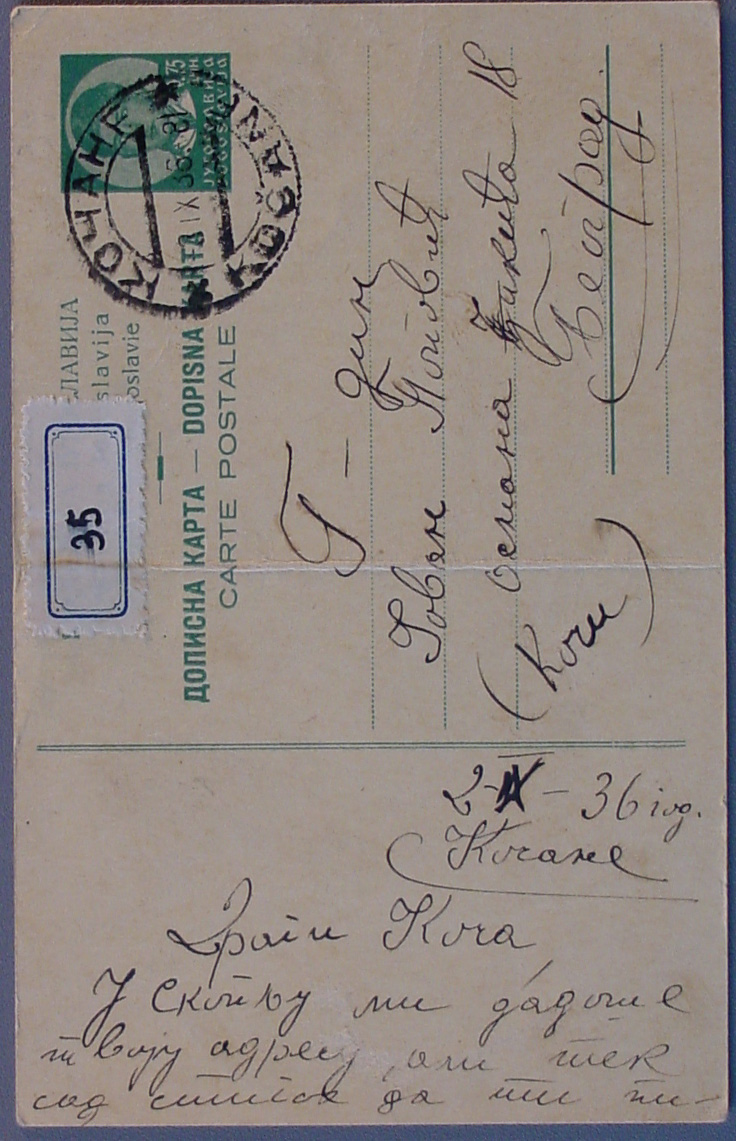 ЛАВИЈА
slavija
oslavie
ДОПИСНА КАРТА — DOPISNA KARTA
CARTE POSTALE
1.75
ДИН.
ЈУГОСЛАВИЈА
КОЧАНЕ
KOČANE
IX 36. 18
35
Г – дин
Јован Поповић
Османа Ђикића 18
Београд.
(Кочи)
2-IX-36 год.
Кочане
Драги Коча
У Скопљу ми дадоше
твоју адресу, али тек
сад стигох да ти пи-